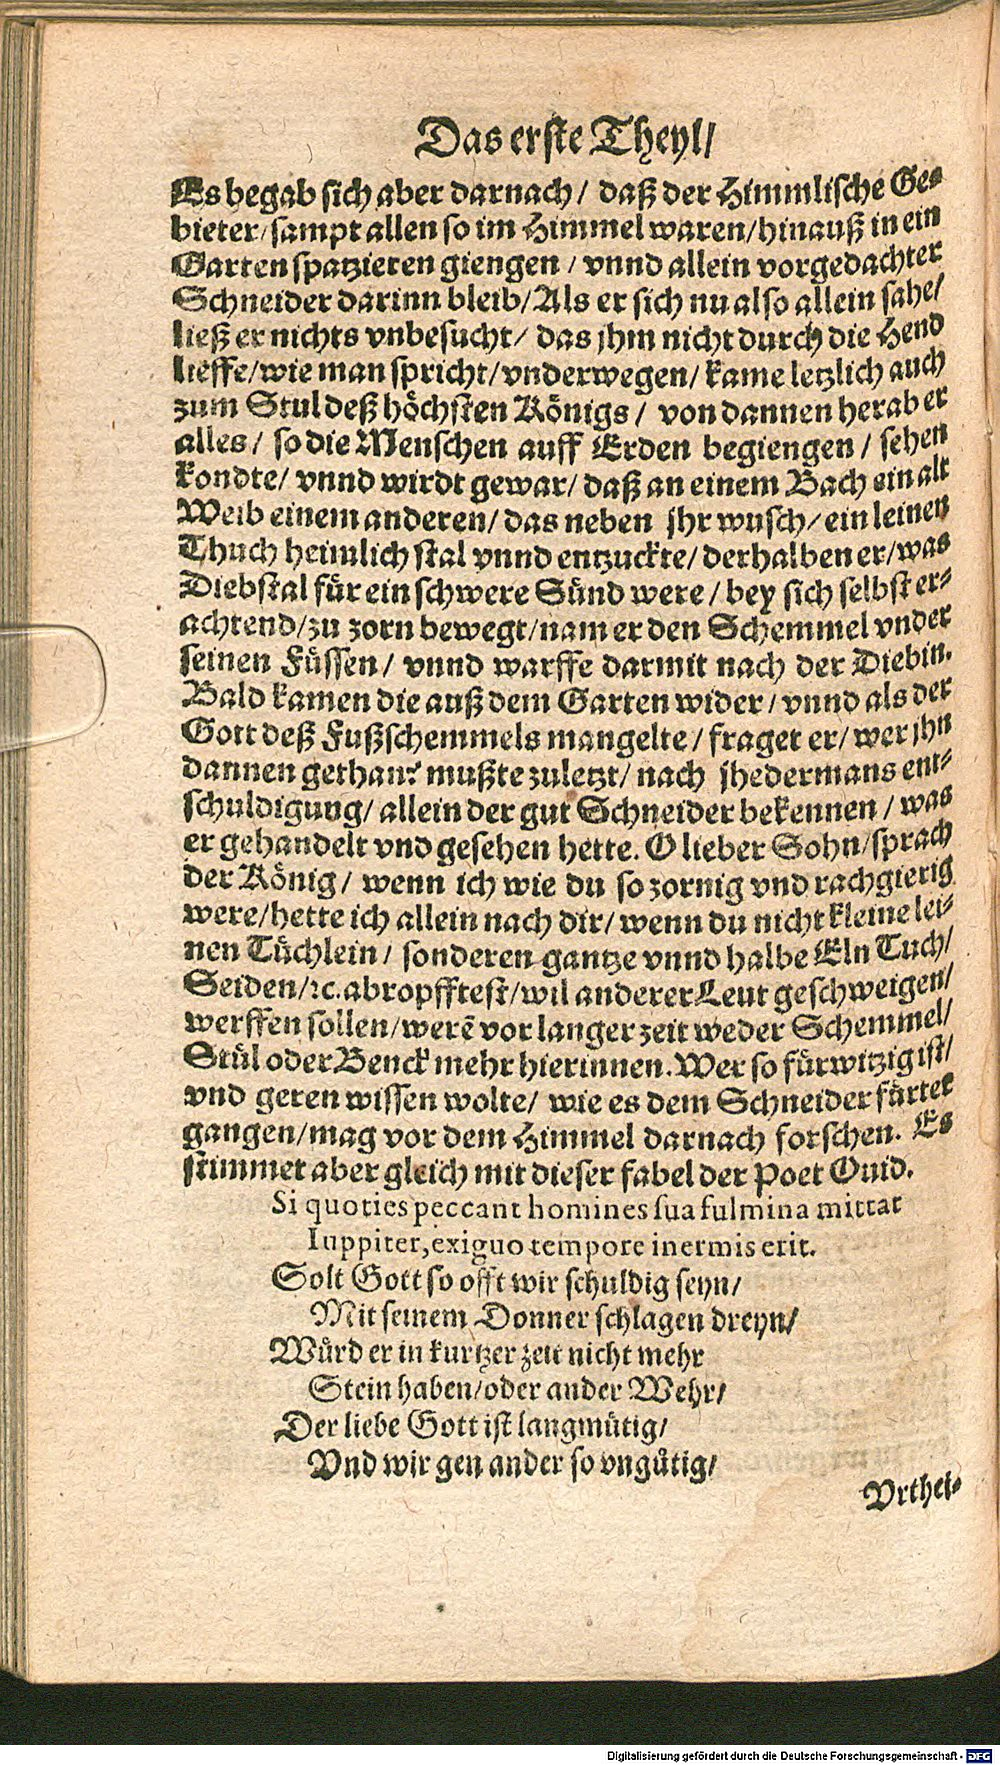 Das erste Theyl/
Es begab sich aber darnach/ daß der Himmlische Ge⸗
bieter/sampt allen so im Himmel waren/hinauß in ein
Garten spatzieren giengen / vnnd allein vorgedachter
Schneider darinn bleib/Als er sich nu also allein sahe/
ließ er nichts vnbesucht/ das jhm nicht durch die Hend
lieffe/wie man spricht/vnderwegen/ kame letzlich auch
zum Stul deß höchsten Königs / von dannen herab er
alles/ so die Menschen auff Erden begiengen / sehen
kondte/ vnnd wirdt gewar/ daß an einem Bach ein alt
Weib einem anderen/ das neben jhr wusch/ ein leinen
Thuch heimlich stal vnnd entzuckte/ derhalben er/was
Diebstal für ein schwere Sünd were / bey sich selbst er⸗
achtend/zu zorn bewegt/nam er den Schemmel vnder
seinen Füssen/ vnnd warffe darmit nach der Diebin.
Bald kamen die auß dem Garten wider/ vnnd als der
Gott deß Fußschemmels mangelte/ fraget er/ wer jhn
dannen gethan? mußte zuletzt/ nach jhedermans ent⸗
schuldigung/ allein der gut Schneider bekennen / was
er gehandelt vnd gesehen hette. O lieber Sohn/sprach
der König/ wenn ich wie du so zornig vnd rachgierig
were/hette ich allein nach dir/ wenn du nicht kleine lei⸗
nen Tüchlein/ sonderen gantze vnnd halbe Eln Tuch/
Seiden/ꝛc. abropfftest/wil anderer Leut geschweigen/
werffen sollen/werẽ vor langer zeit weder Schemmel/
Stül oder Benck mehr hierinnen. Wer so fürwitzig ist/
vnd geren wissen wolte/ wie es dem Schneider fürter
gangen/mag vor dem Himmel darnach forschen. Es
stimmet aber gleich mit dieser fabel der Poet Ouid.
Si quoties peccant homines sua fulmina mittat
Iuppiter, exiguo tempore inermis erit.
Solt Gott so offt wir schuldig seyn/
Mit seinem Donner schlagen dreyn/
Würd er in kurtzer zeit nicht mehr
Stein haben/oder ander Wehr/
Der liebe Gott ist langmütig/
Vnd wir gen ander so vngütig/
Vrthei⸗
Digitalisierung gefördert durch die Deutsche Forschungsgemeinschaft - DFG